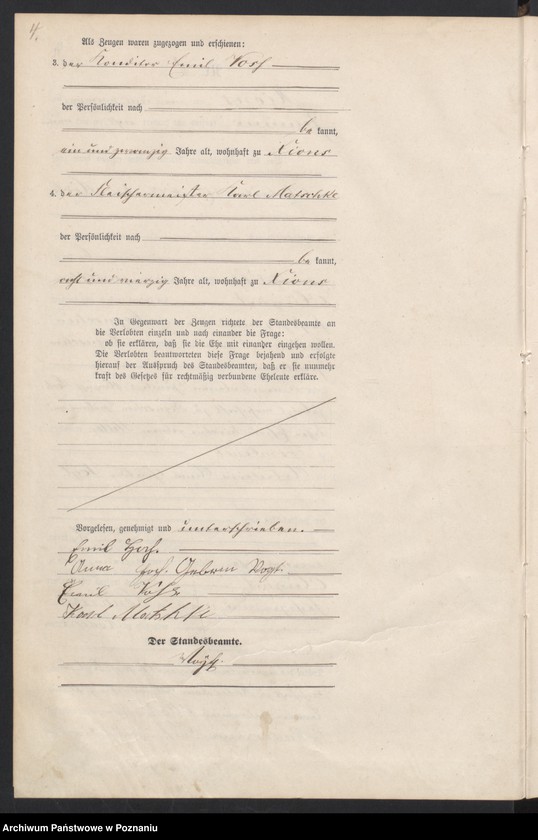 4.
Als Zeugen waren zugezogen und erschienen:
3. der Konditor Emil
der Persönlichkeit nach
be kannt,
ein und zwanzig Jahre alt, wohnhaft zu Xions
4. der Fleischermeister Karl Matschke
der Persönlichkeit nach
be kannt,
acht und vierzig Jahre alt, wohnhaft zu Xions
In Gegenwart der Zeugen richtete der Standesbeamte an
die Verlobten einzeln und nach einander die Frage:
ob sie erklären, daß sie die Ehe mit einander eingehen wollen.
Die Verlobten beantworteten diese Frage bejahend und erfolgte
hierauf der Ausspruch des Standesbeamten, daß er sie nunmehr
kraft des Gesetzes für rechtmäßig verbundene Eheleute erkläre.
Vorgelesen, genehmigt und unterschrieben.
Emil
Anna geboren Vogt
Emil
Karl
Der Standesbeamte.
Archiwum Państwowe w Poznaniu